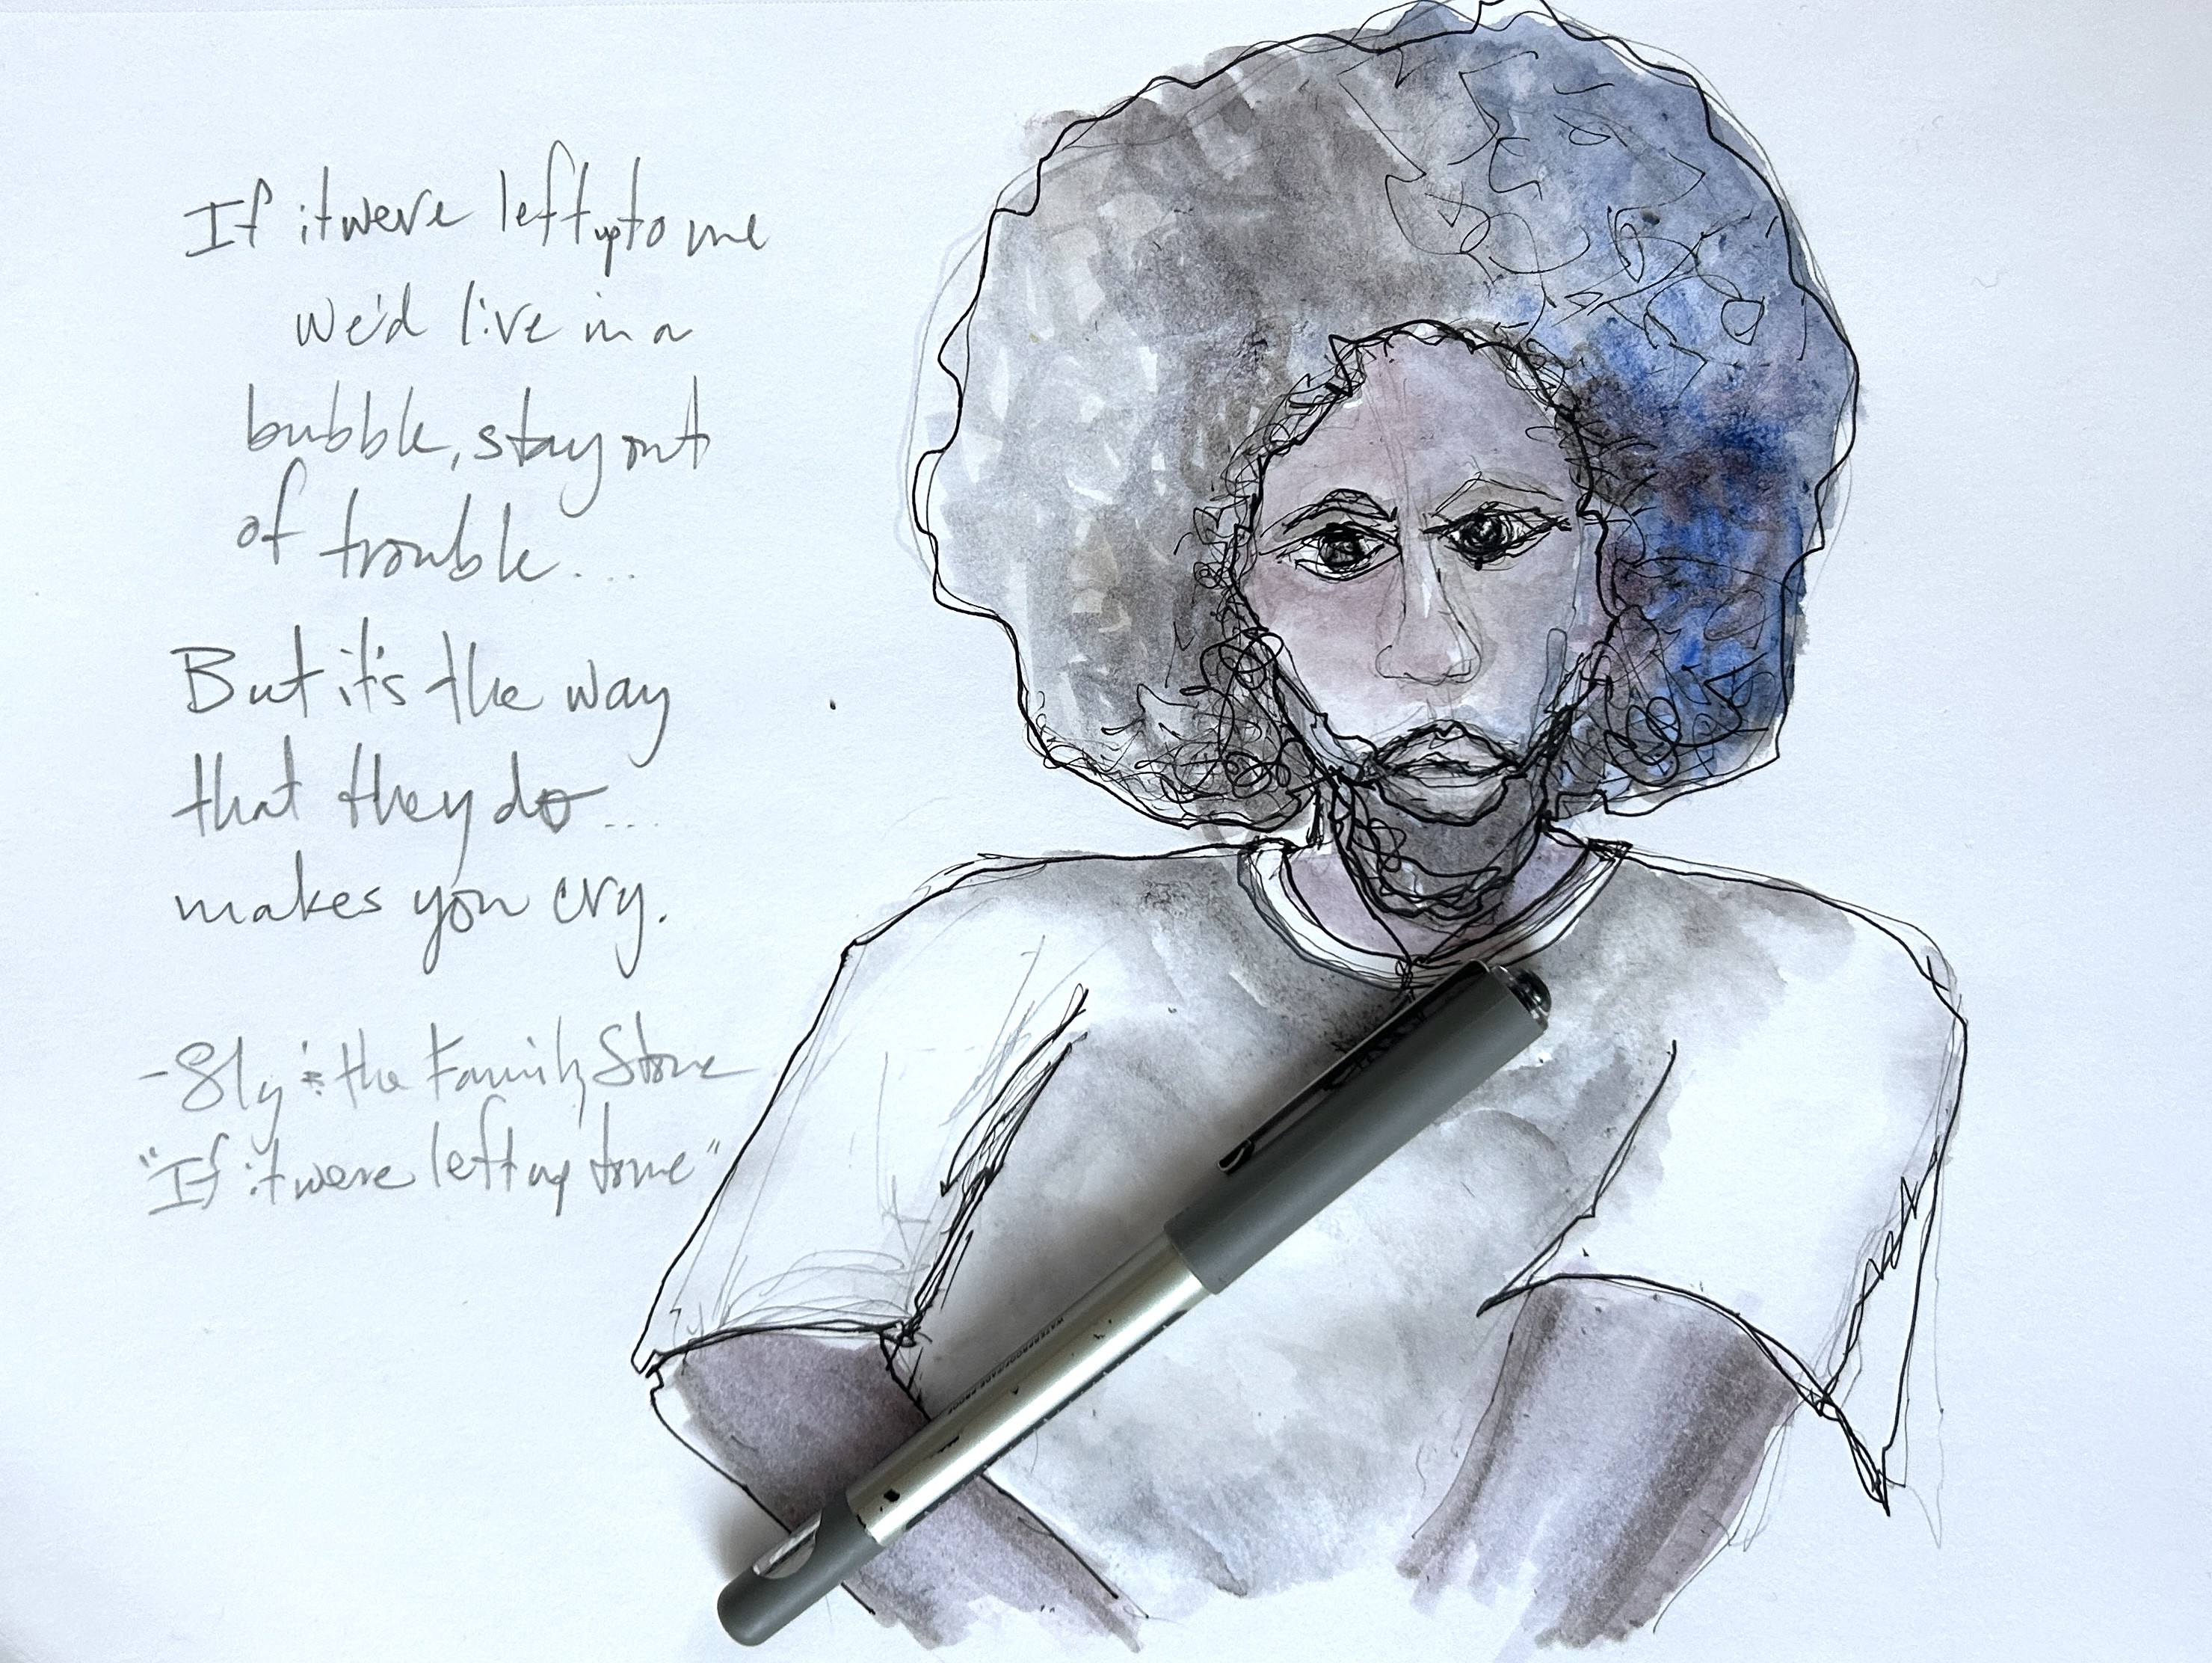 If it were left up to me
we'd live in a
bubble, stay out
of trouble...
But it's the way
that they do...
makes you cry.
- Sly & the Family Stone
"If it were left up to me"
WATERPROOF/FADE PROOF